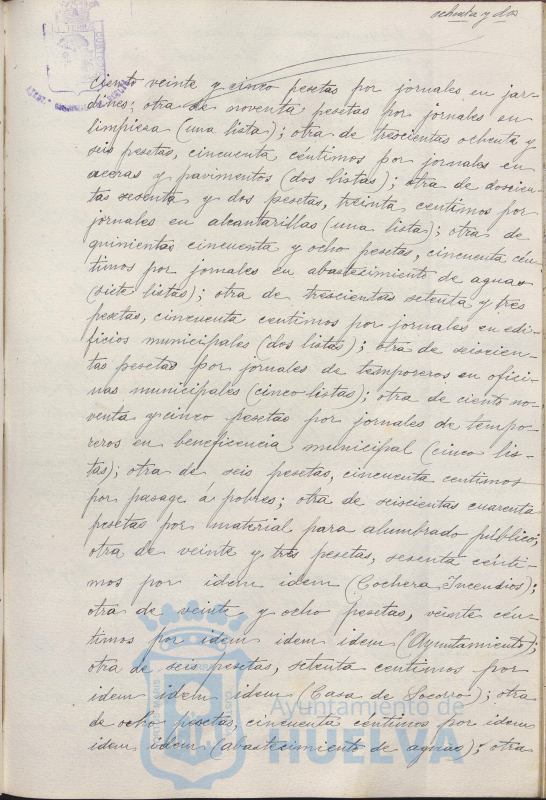 ochenta y dos
ciento veinte y cinco pesetas por jornales en jar-
dines; otra de noventa pesetas por jornales en
limpieza (una lista); otra de trescientas ochenta y
seis pesetas, cincuenta céntimos por jornales en
aceras y pavimentos (dos listas); otra de doscien-
tas sesenta y dos pesetas, treinta centimos por
jornales en alcantarillas (una lista); otra de
quinientas cincuenta y ocho pesetas, cincuenta cén-
timos por jornales en abastecimiento de aguas
(siete listas); otra de trescientas setenta y tres
pesetas, cincuenta centimos por jornales en edi-
ficios municipales (dos listas); otra de seiscien-
tas pesetas por jornales de temporeros en ofici-
nas municipales (cinco listas); otra de ciento no-
venta y cinco pesetas por jornales de tempo-
reros en beneficencia municipal (cinco lis-
tas); otra de seis pesetas, cincuenta centimos
por pasage á pobres; otra de seiscientas cuarenta
pesetas por material para alumbrado público;
otra de veinte y tres pesetas, sesenta cénti-
mos por idem idem (Cochera Incendios);
otra de veinte y ocho pesetas, veinte cén-
timos por idem idem idem (Ayuntamiento);
otra de seis pesetas, setenta centimos por
idem idem idem (Casa de Socorro); otra
de ocho pesetas, cincuenta céntimos por idem
idem idem (abastecimiento de aguas); otra
Ayuntamiento de
HUELVA